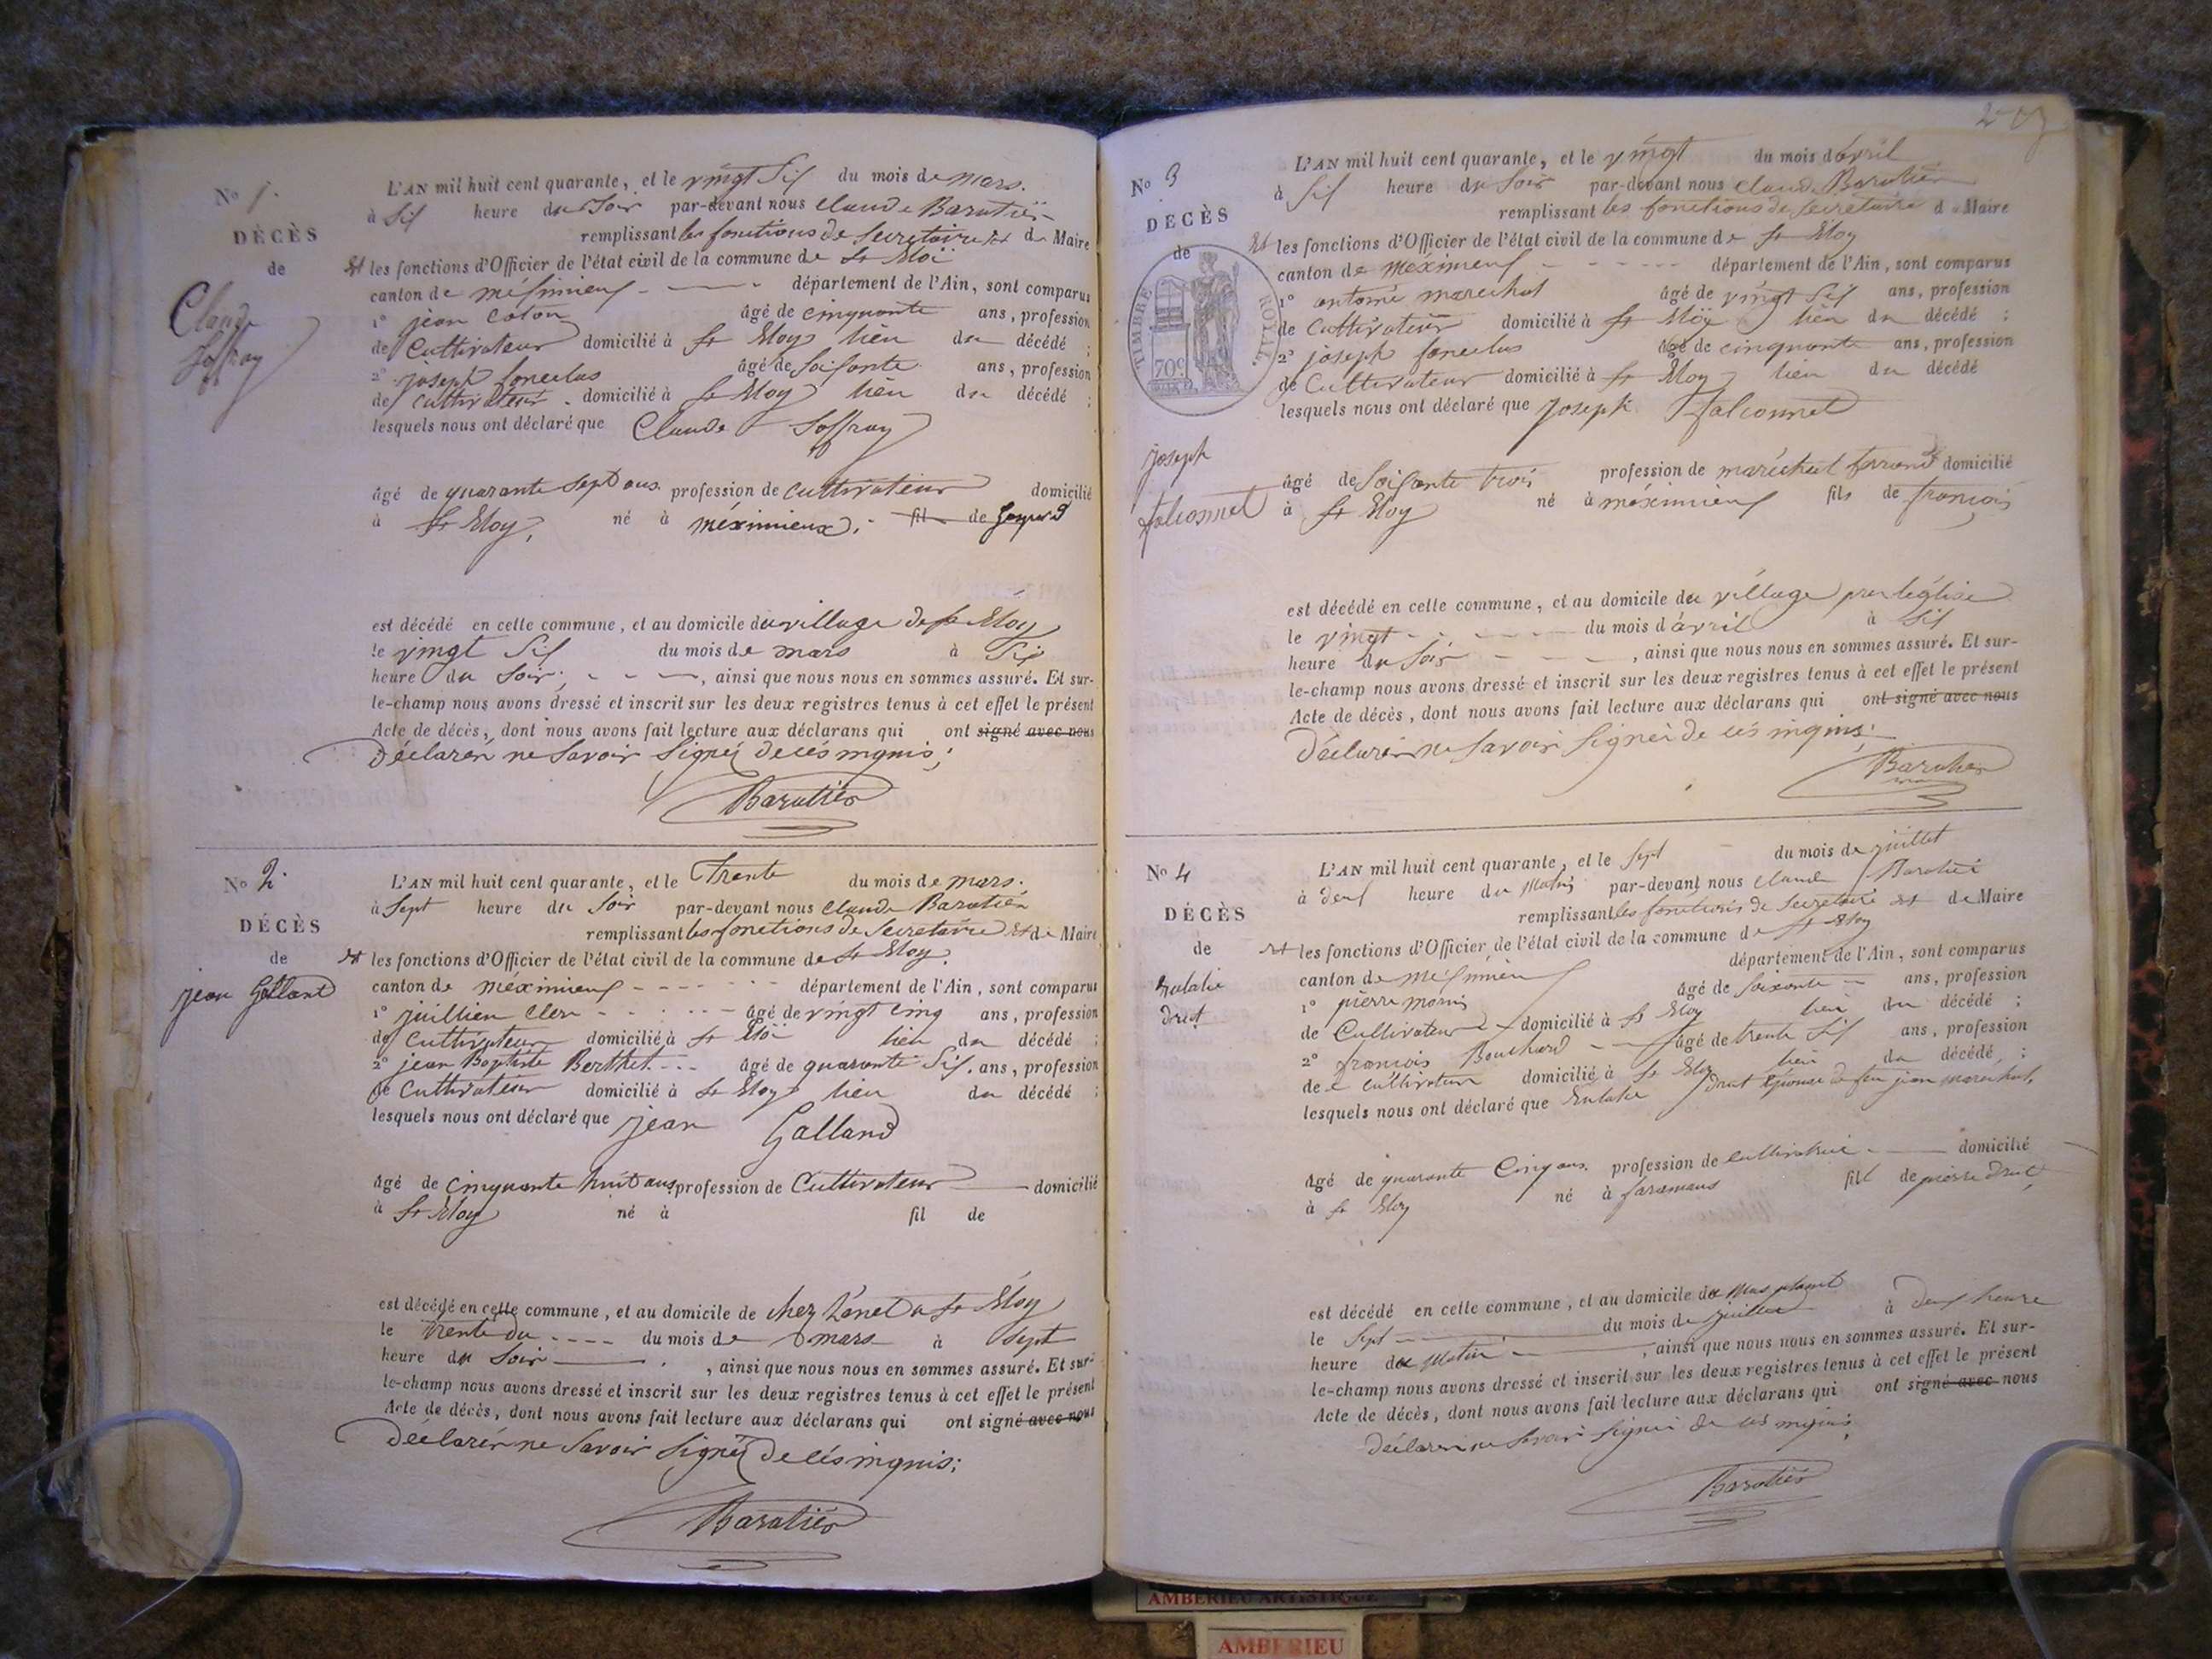 No 1.
DÉCÈS
de
Claude
Joffray
L'AN mil huit cent quarante, et le vingt Six du mois de mars.
à Six heure du Soir par-devant nous Claude Baratier
remplissant les fonctions de Secretaire et de Maire
et les fonctions d'Officier de l'état civil de la commune de St Eloi
canton de méximieux département de l'Ain, sont comparus
1° jean Colon âgé de cinquante ans, profession
de Cultivateur domicilié à St Eloy lieu du décédé ;
2° joseph foncelas âgé de Soisante ans, profession
de cultivateur domicilié à St Eloy lieu du décédé ;
lesquels nous ont déclaré que Claude Joffray
âgé de quarante Sept ans profession de Cultivateur domicilié
à St Eloy, né à méximieux, fil de Gaspard
est décédé en cette commune, et au domicile du village de St Eloy
le vingt Six du mois de mars à Six
heure du Soir ; , ainsi que nous nous en sommes assuré. Et sur-
le-champ nous avons dressé et inscrit sur les deux registres tenus à cet effet le présent
Acte de décès, dont nous avons fait lecture aux déclarans qui ont signé avec nous
Déclarér ne Savoir Signér de cés inquis ;
Baratier
No 2.
DÉCÈS
de
jean Galland
L'AN mil huit cent quarante, et le Trente du mois de mars.
à Sept heure du Soir par-devant nous Claude Baratier
remplissant les fonctions de Secretaire et de Maire
et les fonctions d'Officier de l'état civil de la commune de St Eloy.
canton de méximieux département de l'Ain, sont comparus
1° juillien Clerc âgé de vingt cinq ans, profession
de Cultivateur domicilié à St Eloi lieu du décédé ;
2° jean Baptiste Berthet âgé de quarante Six. ans, profession
de Cultivateur domicilié à St Eloy lieu du décédé ;
lesquels nous ont déclaré que jean Galland
âgé de cinquante huit ans profession de Cultivateur domicilié
à St Eloy né à fil de
est décédé en cette commune, et au domicile de chez a St Eloy
le trente du du mois de mars à Sept
heure du Soir , ainsi que nous nous en sommes assuré. Et sur-
le-champ nous avons dressé et inscrit sur les deux registres tenus à cet effet le présent
Acte de décès, dont nous avons fait lecture aux déclarans qui ont signé avec nous
déclarér ne Savoir Signér de cés inquis ;
Baratier
No 3
DÉCÈS
de
TIMBRE ROYAL.
70c.
joseph
falconnet
L'AN mil huit cent quarante, et le vingt du mois d'avril
à Six heure du Soir par-devant nous Claude Baratier
remplissant les fonctions de Secretaire de Maire
Et les fonctions d'Officier de l'état civil de la commune de St Eloy
canton de méximieux département de l'Ain, sont comparus
1° antoine marechal âgé de vingt Six ans, profession
de Cultivateur domicilié à St Eloy lieu du décédé ;
2° joseph foncelas âgé de cinquante ans, profession
de Cultivateur domicilié à St Eloy lieu du décédé
lesquels nous ont déclaré que joseph falconnet
âgé de Soisante trois profession de maréchal domicilié
à St Eloy né à méximieux fils de françois
est décédé en cette commune, et au domicile du village pres léglise
le vingt du mois d'avril à Six
heure du Soir , ainsi que nous nous en sommes assuré. Et sur-
le-champ nous avons dressé et inscrit sur les deux registres tenus à cet effet le présent
Acte de décès, dont nous avons fait lecture aux déclarans qui ont signé avec nous
Déclarér ne Savoir Signér de cés inquis ;
Baratier
No 4
DÉCÈS
de
Eulalie
druet
L'AN mil huit cent quarante, et le Sept du mois de juillet
à deux heure du Matin par-devant nous Claude Baratier
remplissant les fonctions de Secretaire et de Maire
et les fonctions d'Officier de l'état civil de la commune de St Eloy
canton de méximieux département de l'Ain, sont comparus
1° pierre morin âgé de soixante ans, profession
de Cultivateur domicilié à St Eloy lieu du décédé ;
2° francois Bouchard âgé de trente Six ans, profession
de cultivateur domicilié à St Eloy lieu du décédé ;
lesquels nous ont déclaré que Eulalie druet épouse de feu jean maréchal,
âgé de quarante Cinq ans profession de cultivatrice domicilié
à St Eloy né à faramans fill de pierre druet
est décédé en cette commune, et au domicile du Mas
le Sept du mois de juillet à deux heure
heure du Matin , ainsi que nous nous en sommes assuré. Et sur-
le-champ nous avons dressé et inscrit sur les deux registres tenus à cet effet le présent
Acte de décès, dont nous avons fait lecture aux déclarans qui ont signé avec nous
déclarér ne Savoir Signér de cés inquis ;
Baratier
AMBERIEU ARTISTIQUE
AMBERIEU